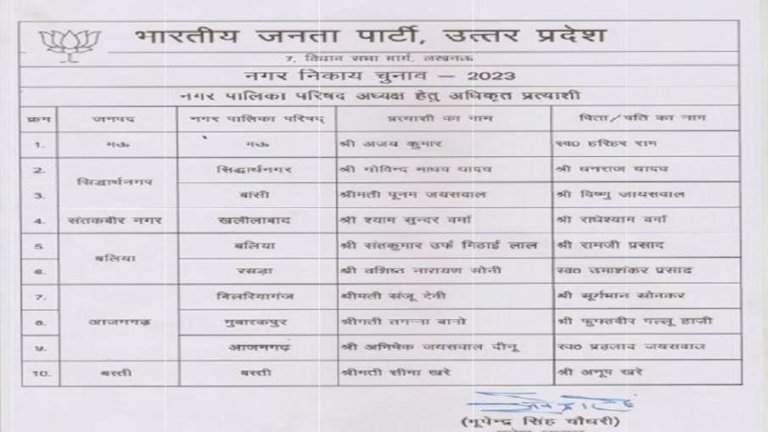 भारतीय जनता पार्टी, उत्तर प्रदेश
7, विधान सभा मार्ग, लखनऊ
नगर निकाय चुनाव – 2023
नगर पालिका परिषद अध्यक्ष हेतु अधिकृत प्रत्याशी
क्रम जनपद नगर पालिका परिषद् प्रत्याशी का नाम पिता/पति का नाम
1. मऊ मऊ श्री अजय कुमार स्व० हरिहर राम
2. सिद्धार्थनगर सिद्धार्थनगर श्री गोविन्द माधव यादव श्री धनराज यादव
3. बांसी श्रीमती पूनम जयसवाल श्री विष्णु जायसवाल
4. संतकबीर नगर खलीलाबाद श्री श्याम सुन्दर वर्मा श्री राधेश्याम वर्मा
5. बलिया बलिया श्री संतकुमार उर्फ मिठाई लाल श्री रामजी प्रसाद
6. रसड़ा श्री वशिष्ठ नारायण सोनी स्व० उमाशंकर प्रसाद
7. आजमगढ़ बिलरियागंज श्रीमती संजू देवी श्री सूर्यभान सोनकर
8. मुबारकपुर श्रीमती तमन्ना बानो श्री
9. आजमगढ़ श्री अभिषेक जयसवाल दीनू स्व० प्रहलाद जयसवाल
10. बस्ती बस्ती श्रीमती सीमा खरे श्री अनूप खरे
(भूपेन्द्र सिंह चौधरी)